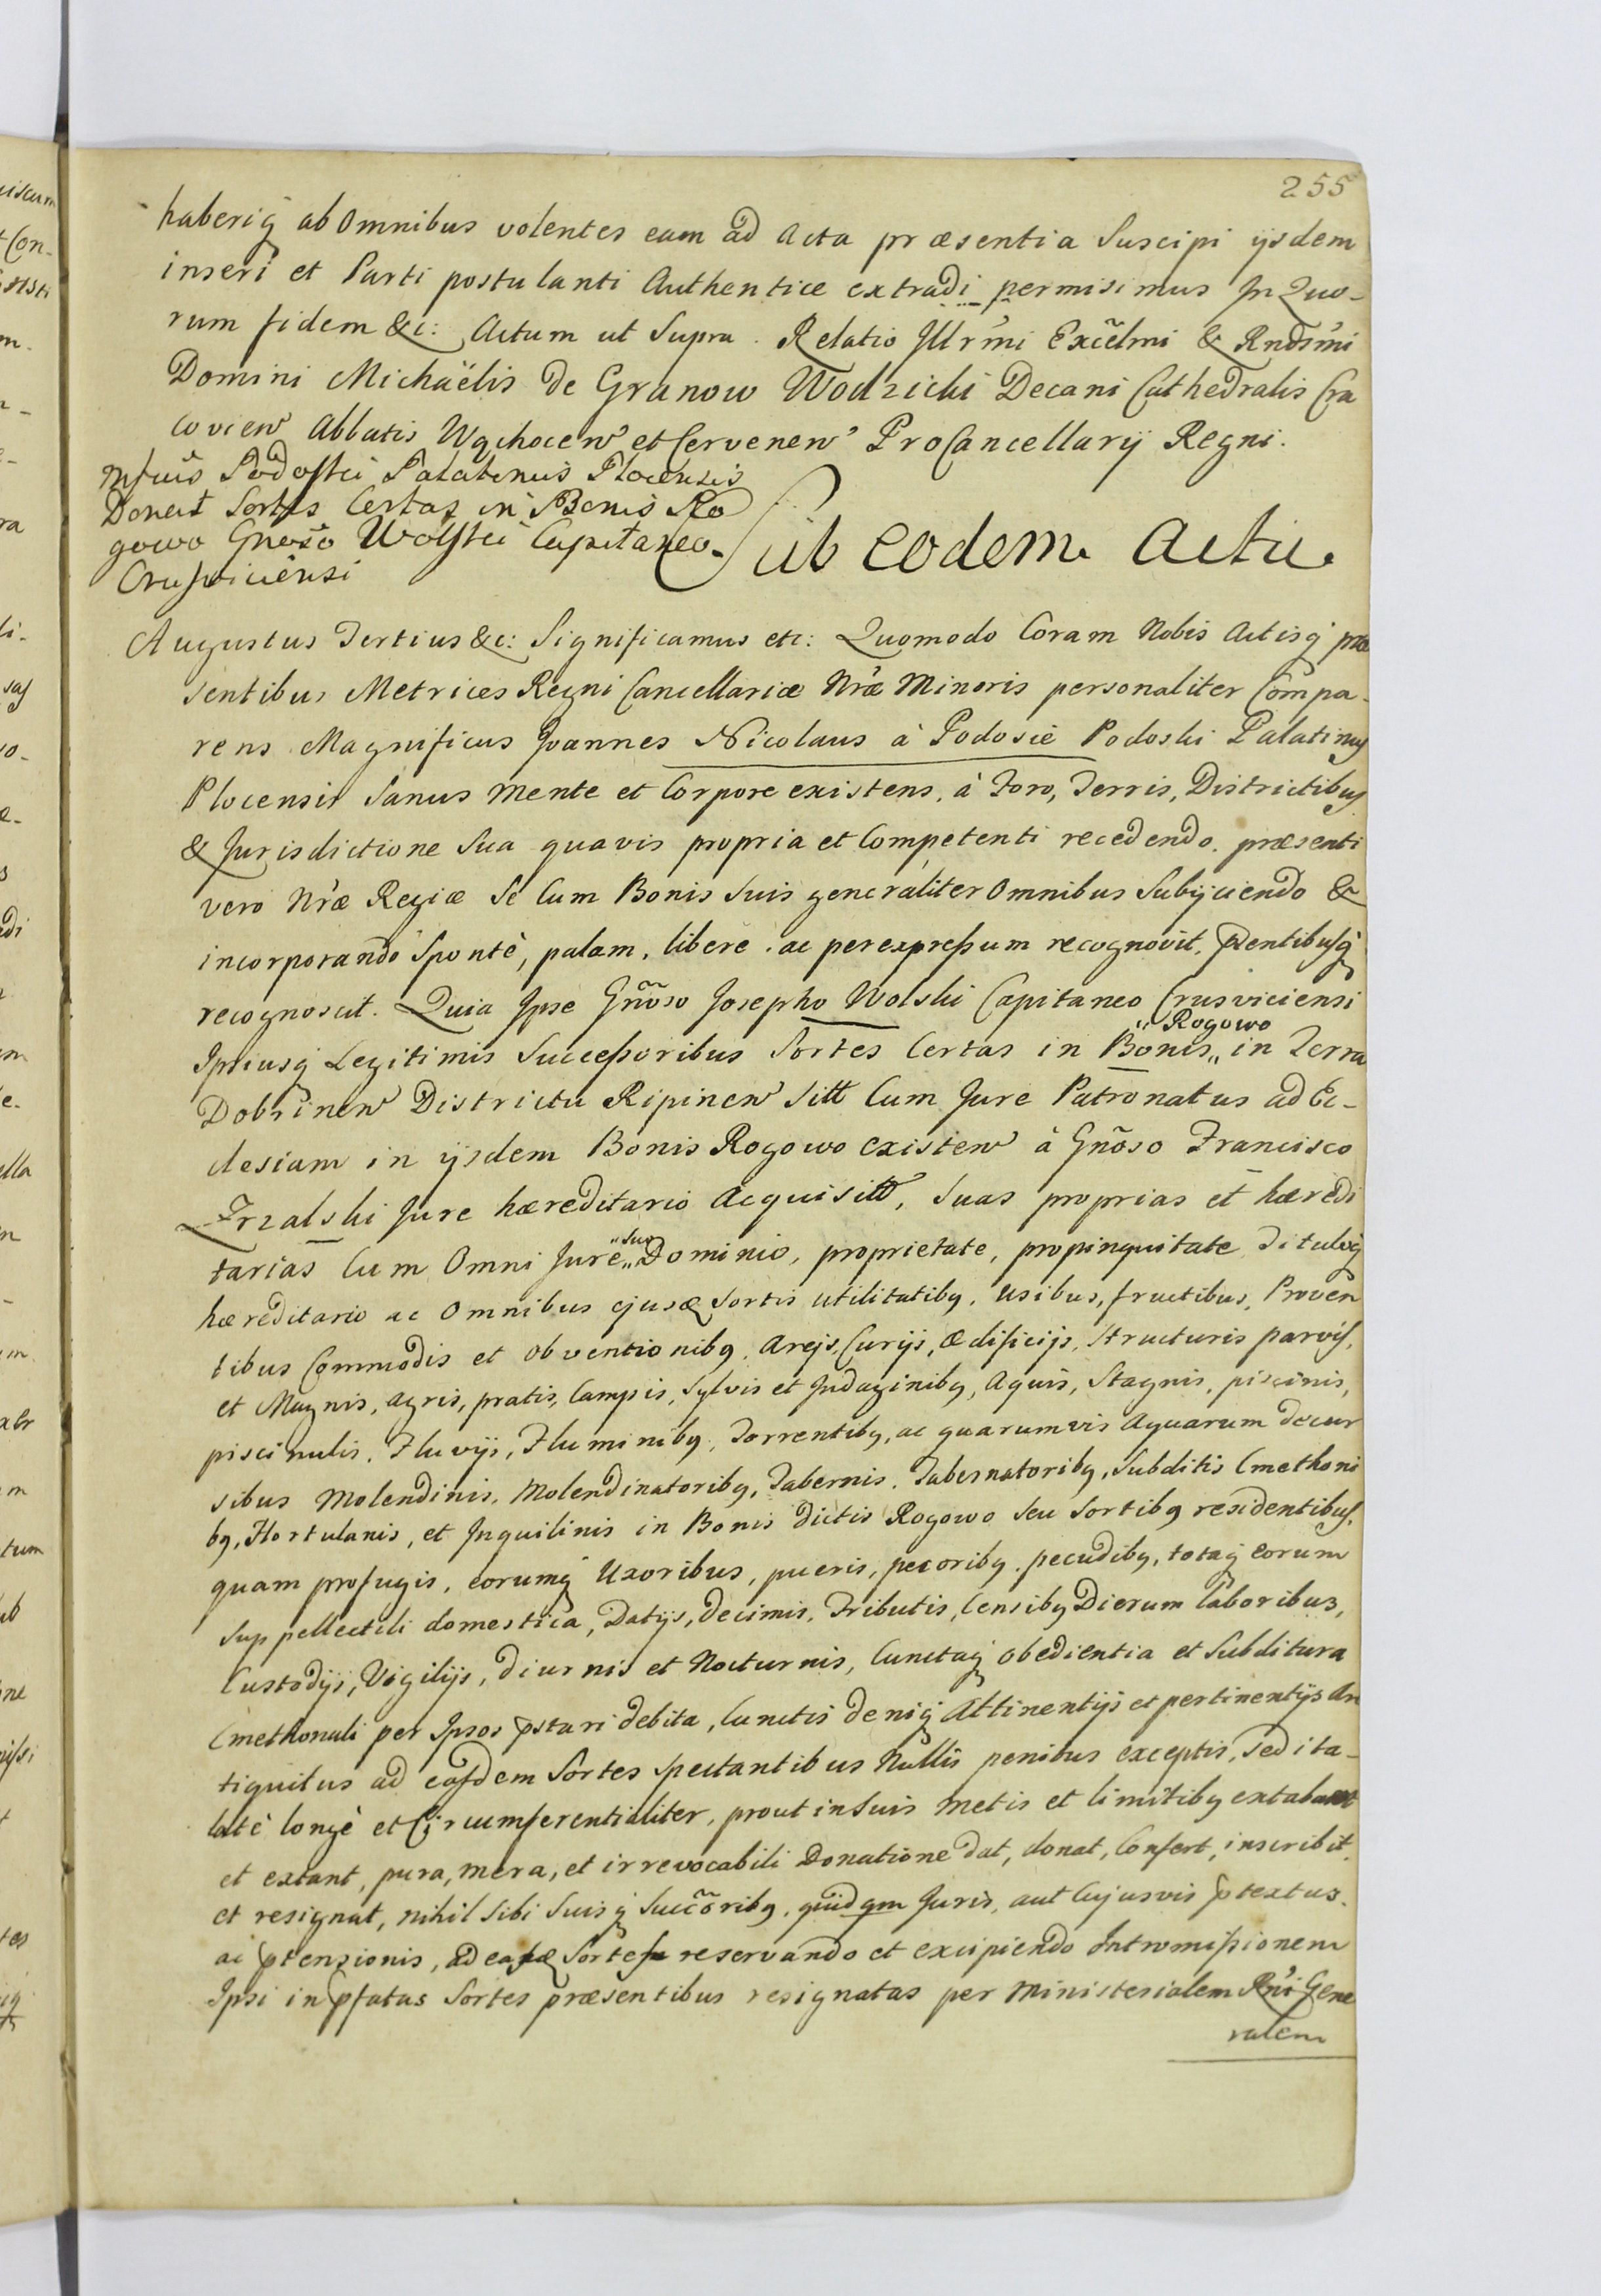 255
haberiq ab Omnibus volentes eam ad Acta præsentia Suscipi ijsdem
inseri et Parti postulanti Authentice extradi permisimus In Quo-
rum fidem &c: Actum ut Supra. Relatio Illr̃mi Excĕlmi & Rndsm̃i
Domini Michaëlis de Granow Wodzicki Decani Cathedralis Cra
covien Abbatis Wąchocen et Cervenen ProCancellarij Regni.
Mfcus Podoski Palatinus Plocensis
Donat Sortes Certas in Bonis Ro
gowo Gnoso Wolski Capitaneo
Crusviciensi
Sub eodem Actu.
Augustus Tertius &c: Significamus etc: Quomodo Coram Nobis Actisq præ
sentibus Metrices Regni Cancellariæ Nræ Minoris personaliter Compa-
rens Magnificus Joannes Nicolaus à Podosie Podoski Palatinus
Plocensis Sanus mente et Corpore existens, à Foro, Terris, Districtibus
& Jurisdictione Sua quavis propria et Competenti recedendo. præsenti
vero Nræ Regiæ Se Cum Bonis Suis generaliter Omnibus Subijciendo &
incorporando Spontè, palam, libere ac per expressum recognovit, pñtentibusq
recognoscit. Quia Ipse Gnõso Josepho Wolski Capitaneo Crusviciensi
Ipsiusq Legitimis Successoribus Sortes Certas in Bonis „ Rogowo „ in Terra
Dobrinen Districtu Ripinen Sitt Cum Jure Patronatus ad Ec-
clesiam in ijsdem Bonis Rogowo existen à Gnõso Francisco
Trzalski Jure hæreditario Acquisitt, Suas proprias et hæredi
tarias Cum Omni Jure „ suo „ Dominio, proprietate, propinquitate Tituloq
hæreditario ac Omnibus ejusd Sortis utilitatibq, usibus, fructibus, Proven
tibus Commodis et obventionibq, Areis, Curijs, ædificijs, Structuris parvis,
et Magnis, agris, pratis, Campis, Sylvis et Indaginibq, Aquis, Stagnis, piscinis,
piscinulis, Fluvijs, Fluminibq, Torrentibq, ac quarumvis Aquarum decur
sibus Molendinis, Molendinatoribq, Tabernis, Tabernatoribq, Subditis Cmethoni
bq, Hortulanis, et Inquilinis in Bonis dictis Rogowo Seu Sortibq residentibus,
quam profugis, eorumq Uxoribus, pueris, pecoribq, pecudibq, totaq eorum
Suppellectili domestica, Datijs, decimis, Tributis, Censibq Dierum laboribus,
Custodijs, Vigilijs, diurnis et Nocturnis, Cunctaq obedientia et Subditura
Cmethonali per Ipsos pstari debita, Cunctis deniq Attinentijs et pertinentijs An
tiquitus ad easdem Sortes Spectantibus Nullis penitus exceptis, Sed ita-
latè longè et Circumferentialiter, prout in Suis Metis et limitibq extabant
et extant, pura, mera, et irrevocabili Donatione dat, donat, Confert, inscribit,
et resignat, nihil Sibi Suisq Succõribq, quidqm Juris, aut Cujusvis ptextus,
ac ptensionis, ad easd Sortes reservando et excipiendo Intromissionem
Ipsi in pfatas Sortes præsentibus resignatas per Ministerialem Rñi Gene
ralem